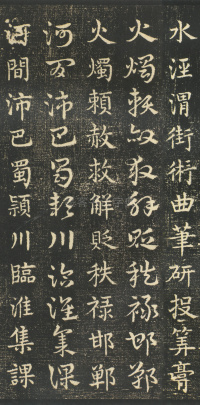 水涇渭街術曲筆研投筭膏
火燭賴赦救解貶秩禄邯鄲
火燭頼赦救解貶秩禄邯鄲
河間沛巴蜀潁川臨淮集課
河間沛巴蜀潁川臨淮集課